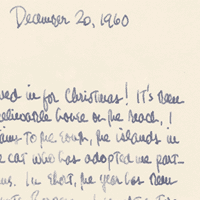 December 20, 1960
ved in for Christmas! It's been
believable house on the beach, I
ains to the south, the islands in
e cat who has adopted me part-
ms. In short, the year has been